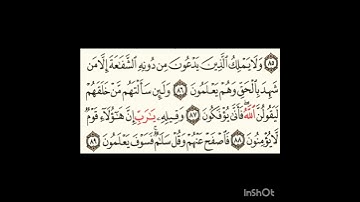 ٨٥ وَلَا يَمْلِكُ الَّذِينَ يَدْعُونَ مِن دُونِهِ الشَّفَاعَةَ إِلَّا مَن
شَهِدَ بِالْحَقِّ وَهُمْ يَعْلَمُونَ ٨٦ وَلَئِن سَأَلْتَهُم مَّنْ خَلَقَهُمْ
لَيَقُولُنَّ اللَّهُ فَأَنَّى يُؤْفَكُونَ ٨٧ وَقِيلِهِ يَارَبِّ إِنَّ هَؤُلَاءِ قَوْمٌ
لَّا يُؤْمِنُونَ ٨٨ فَاصْفَحْ عَنْهُمْ وَقُلْ سَلَامٌ فَسَوْفَ يَعْلَمُونَ ٨٩
InShOt